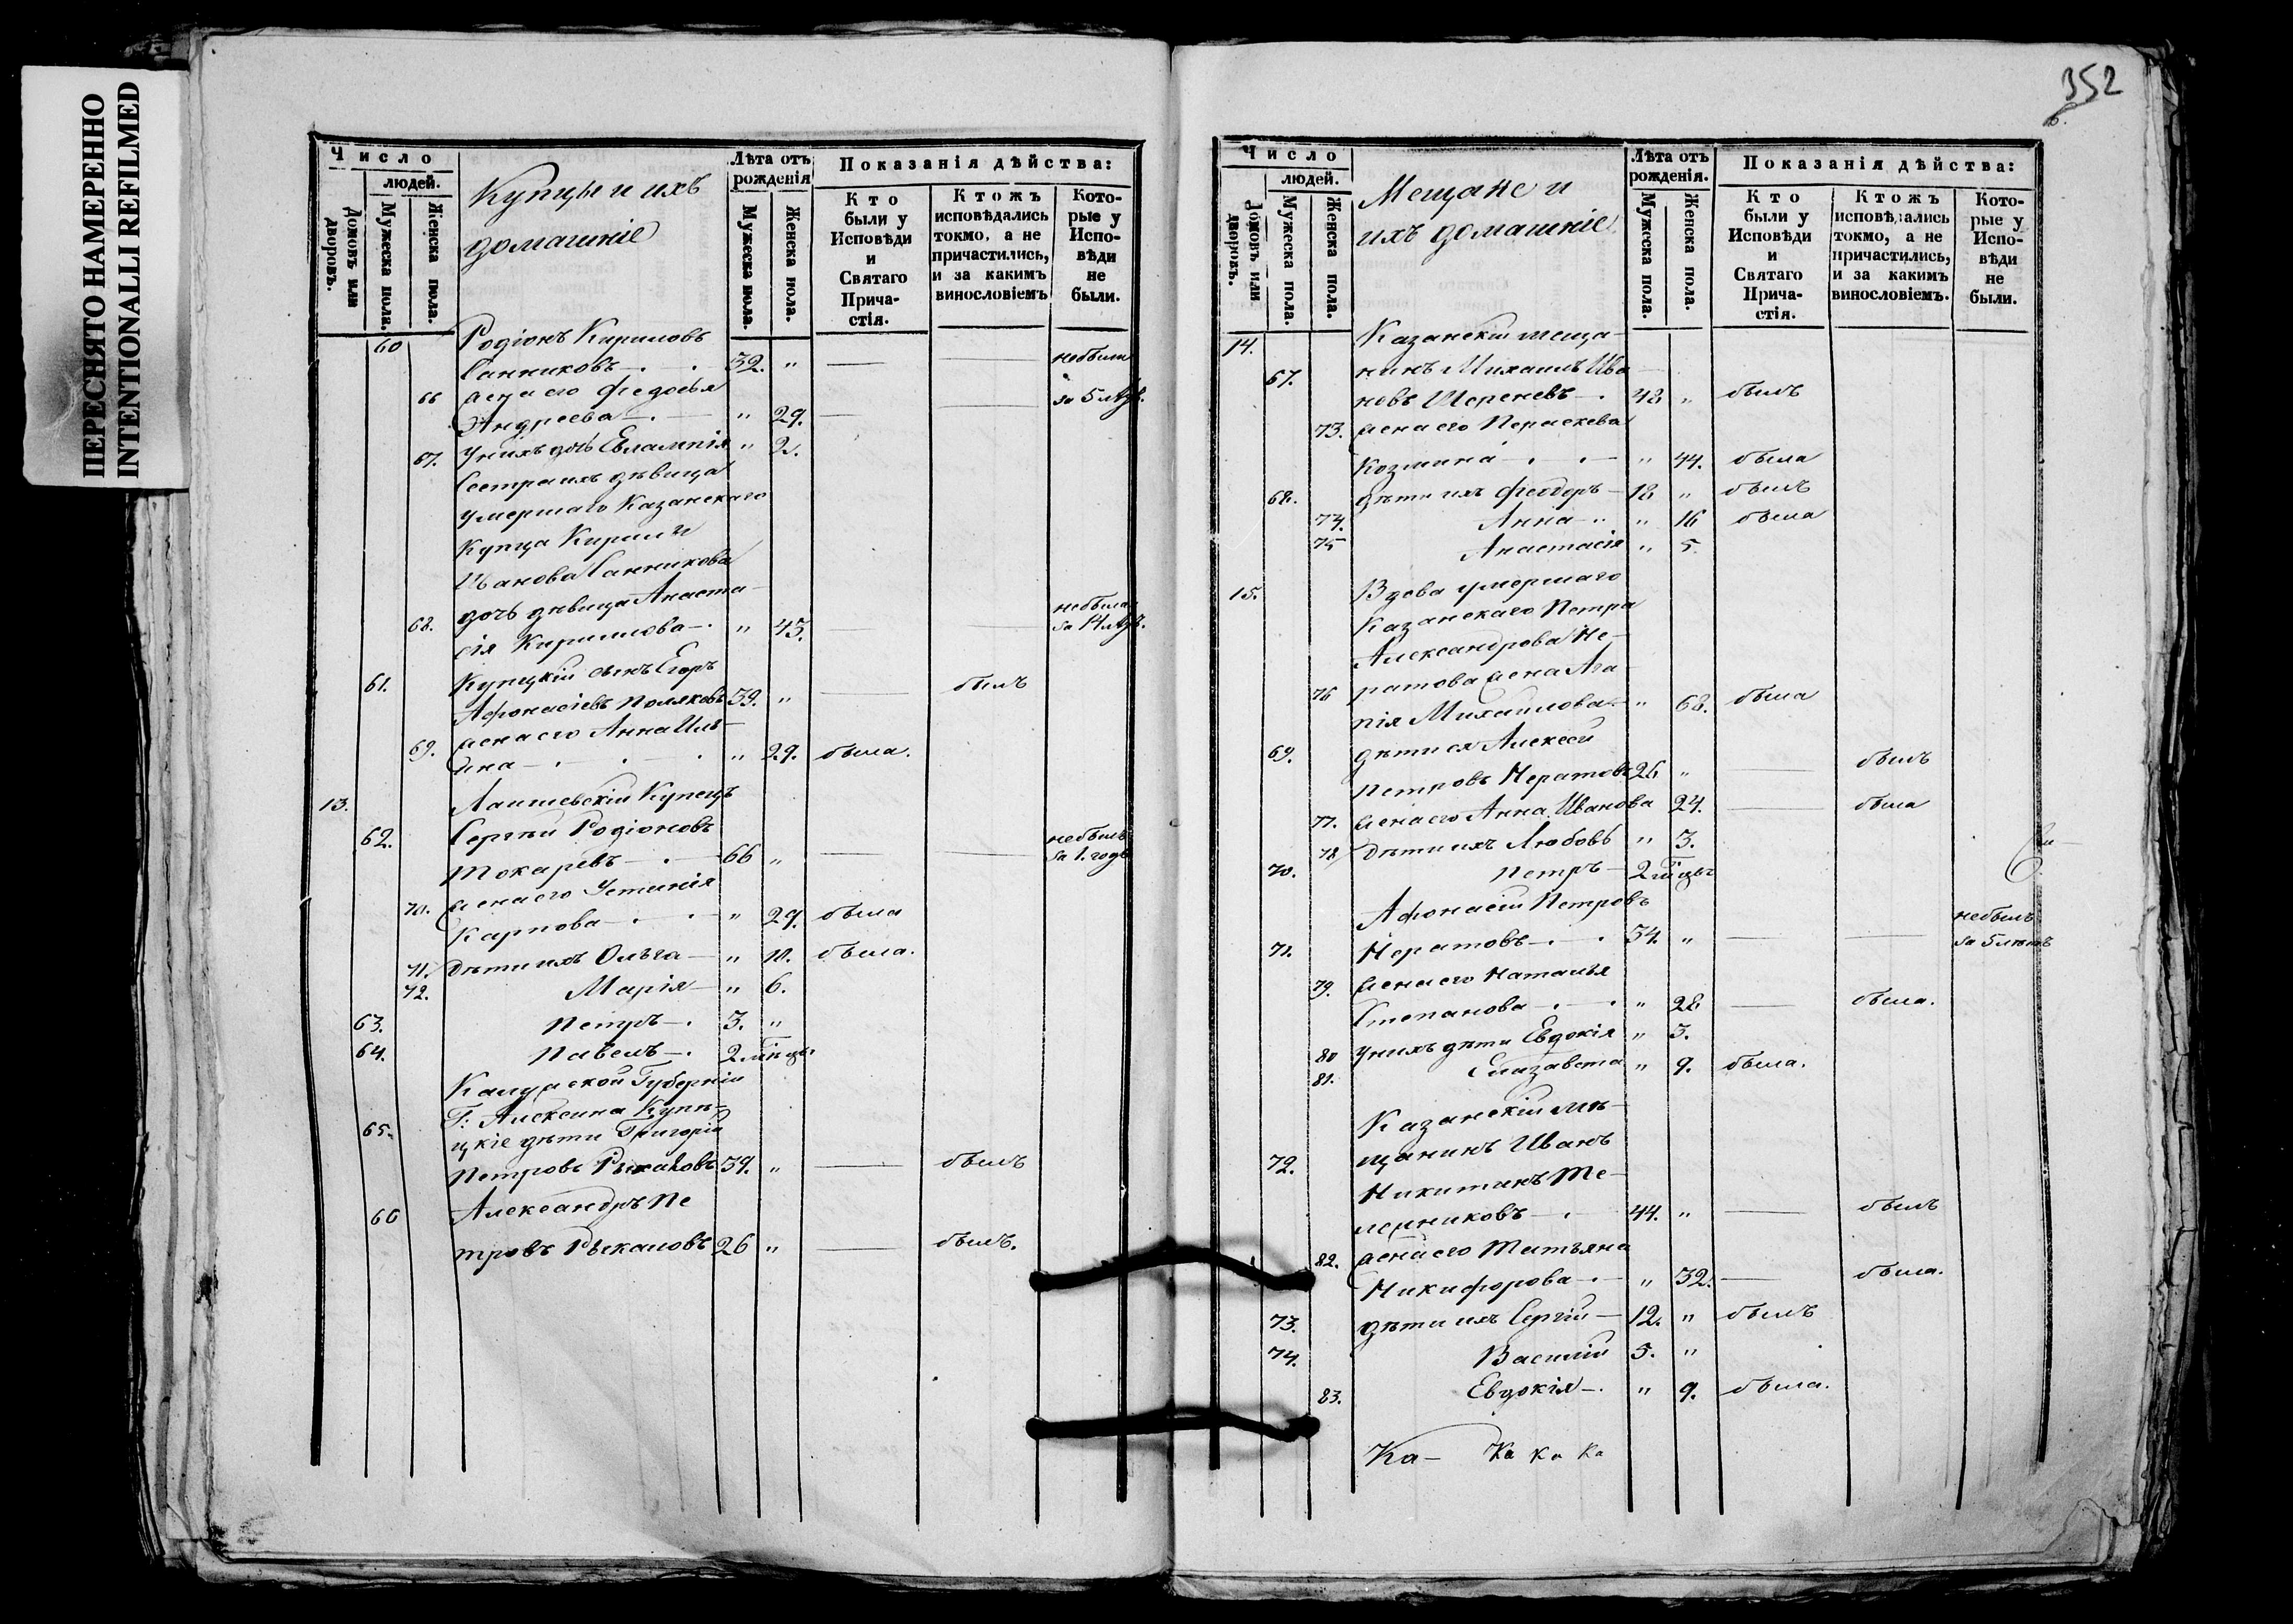 ПЕРЕСНЯТО НАМЕРЕННО
INTENTIONALLI REFILMED
Число
людей.
Домовъ или дворовъ.
Мужеска пола.
Женска пола.
Купцы и ихъ
домашніе
Лѣта отъ рожденія
Мужеска пола.
Женска пола.
Показанія дѣйства:
Кто были у Исповѣди и Святаго Прича-стія.
Ктожъ исповѣдались токмо, а не причастились, и за какимъ винословіемъ
Кото-рые у Испо-вѣди не были.
60 Родіонъ Кириловъ
Санниковъ 32. " — — небылъ
66 жена его Федосья за 5 лѣтъ.
Андреева " 29. — —
67. У нихъ дочь Евлампія " 2.
Сестра ихъ дѣвица
умершаго Казанскаго
Купца Кирилы
Иванова Санникова
дочь дѣвица Анаста- небыла
68. сія Кирилова " 45. — — за 14 лѣтъ.
61. Купецкій сынъ Егоръ
Афонасіевъ Поляковъ 39. " — былъ
69. жена его Анна Иль-
ина " 29. была.
13. Лаишевскій Купецъ
62. Сергѣй Родіоновъ небылъ
Токаревъ 66 " — — за 1. годъ
70. жена его Устинія
Карпова " 29. была
71. Дѣти ихъ Ольга " 10. была.
72. Марія " 6.
63. Петръ 3. "
64. Павелъ 2 мѣсяц.
Калужской Губерніи
Г: Алексина Купе-
65. цкіе дѣти Григорій
Петровъ Рыкаловъ 39. " — былъ
66 Александръ Пе
тровъ Рыкаловъ 26 " — былъ.
352
Число
людей.
Домовъ или дворовъ.
Мужеска пола.
Женска пола.
Мещане и
ихъ домашніе
Лѣта отъ рожденія.
Мужеска пола.
Женска пола.
Показанія дѣйства:
Кто были у Исповѣди и Святаго Прича-стія.
Ктожъ исповѣдались токмо, а не причастились, и за какимъ винословіемъ.
Кото-рые у Испо-вѣди не были.
14. Казанскій меща-
67. нинъ Михаилъ Ива
новъ Шереневъ 48 " былъ
73. жена его Параскева
Козмина " 44. была
68. дѣти ихъ Феодоръ 18 " былъ
74. Анна " 16 была
75 Анастасія " 5.
15. Вдова умершаго
Казанскаго Петра
Александрова Не-
76 ратова жена Ага-
пія Михаилова " 68. была
69. дѣти ея Алексей
Петровъ Нератовъ 26 " — былъ
77. жена его Анна Иванова 24. — была
78 Дѣти ихъ Любовь " 3.
70. Петръ 2 мѣсяц
Афонасій Петровъ небылъ
71. Нератовъ 34. " — — за 5 лѣтъ
79. жена его Наталья
Степанова " 28 — была.
80 У нихъ дѣти Евдокія " 3.
81. Елизавета " 9. была.
Казанскій ме-
72. щанинъ Иванъ
Никитинъ Те-
лешниковъ 44. " — былъ
82. жена его Татьяна
Никифорова " 32. — была.
73. дѣти ихъ Сергій 12. " былъ
74. Василій 5. "
83. Евдокія " 9. была.
Ка- Ка Ка Ка